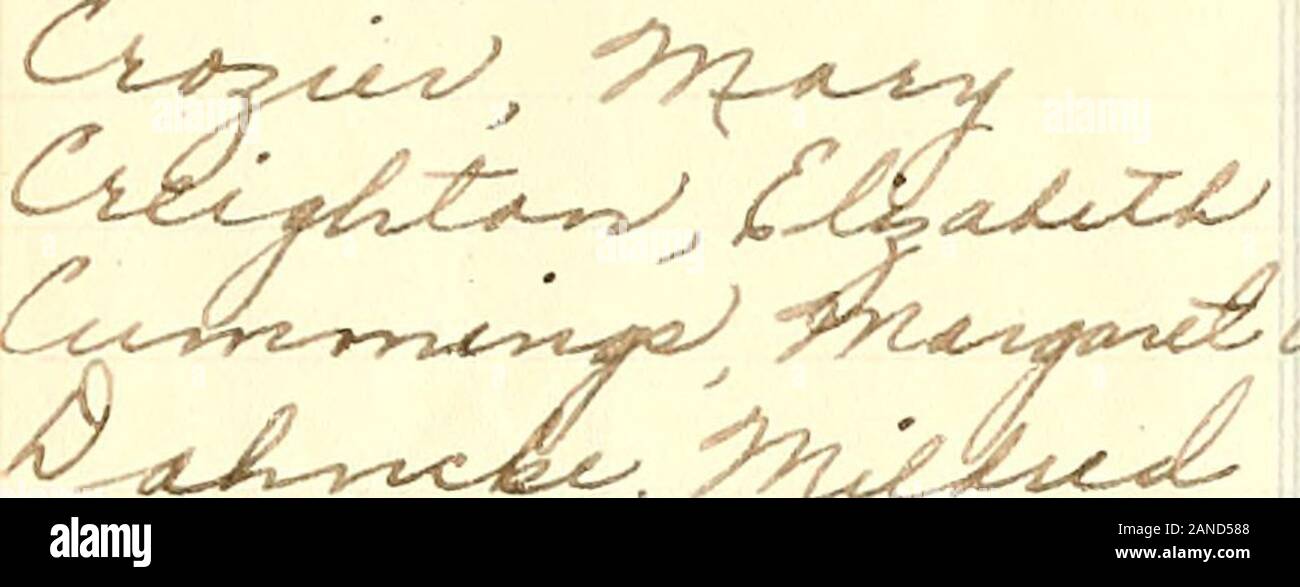 Crozier, Mary
Creighton, Elizabeth
Cummings, Margaret
Dahncke, Mildred
alamy
Image ID: 2AND588
www.alamy.com